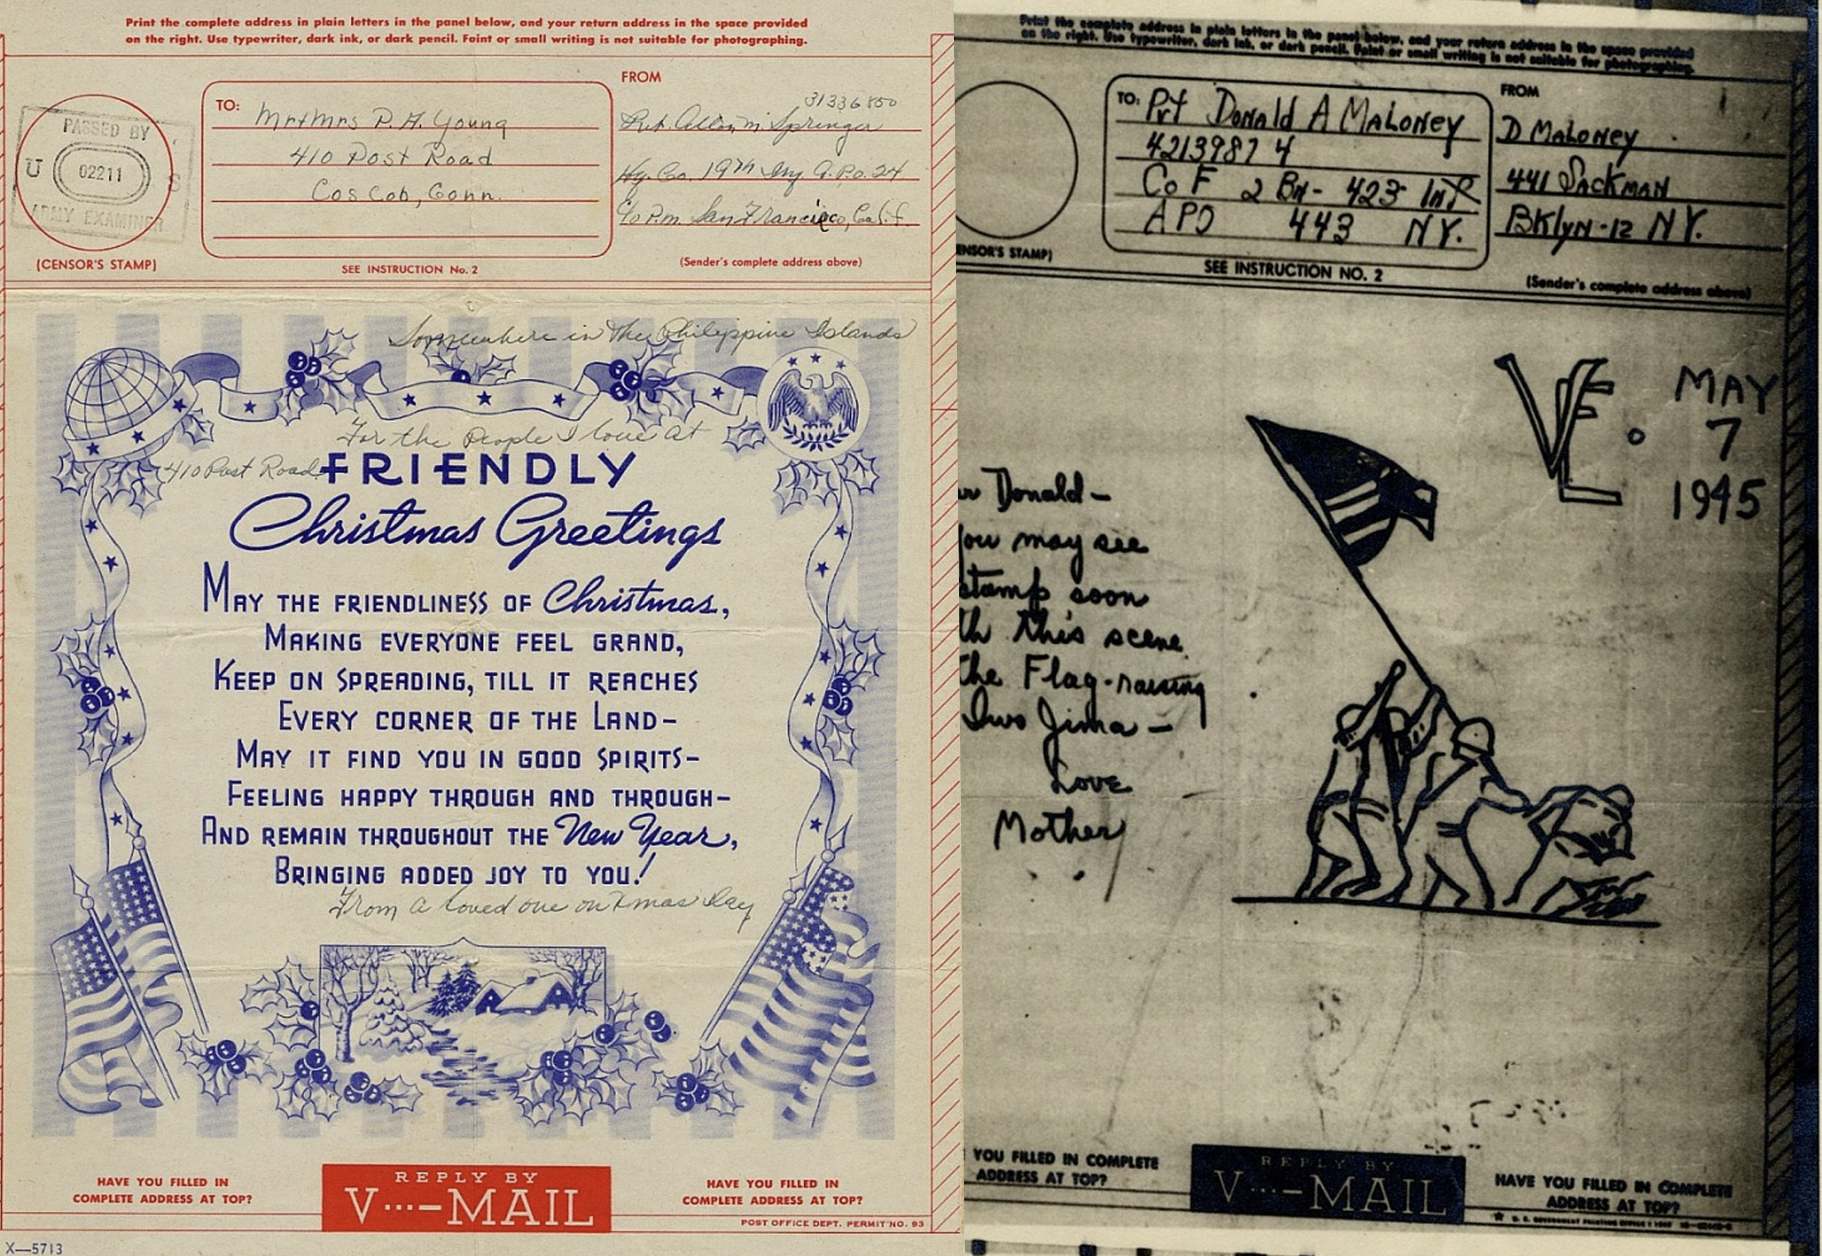 Print the complete address in plain letters in the panel below, and your return address in the space provided
on the right. Use typewriter, dark ink, or dark pencil. Faint or small writing is not suitable for photographing.
PASSED BY
U 02211 S
ARMY EXAMINER
(CENSOR'S STAMP)
TO: Mr+Mrs P. H. Young
410 Post Road
Cos Cob, Conn.
SEE INSTRUCTION No. 2
FROM
31336850
Springer
Hq. Co. 19th Inf A.P.O. 24
c/o P.M. San Francisco, Calif.
(Sender's complete address above)
Somewhere in the Philippine Islands
For the People I love at
410 Post Road
FRIENDLY
Christmas Greetings
MAY THE FRIENDLINESS OF Christmas,
MAKING EVERYONE FEEL GRAND,
KEEP ON SPREADING, TILL IT REACHES
EVERY CORNER OF THE LAND–
MAY IT FIND YOU IN GOOD SPIRITS–
FEELING HAPPY THROUGH AND THROUGH–
AND REMAIN THROUGHOUT THE New Year,
BRINGING ADDED JOY TO YOU!
From a loved one on Xmas Day
HAVE YOU FILLED IN
COMPLETE ADDRESS AT TOP?
REPLY BY
V···—MAIL
HAVE YOU FILLED IN
COMPLETE ADDRESS AT TOP?
POST OFFICE DEPT. PERMIT NO. 93
X—5713
Print the complete address in plain letters in the panel below, and your return address in the space provided
on the right. Use typewriter, dark ink, or dark pencil. Faint or small writing is not suitable for photographing.
ENSOR'S STAMP)
TO: Pvt Donald A MALONEY
42139874
Co F 2 BN- 423 INF
APO 443 NY.
SEE INSTRUCTION NO. 2
FROM
D MALONEY
441 SACKMAN
BKlyN-12 NY.
(Sender's complete address above)
VE. MAY
7
1945
r Donald –
ou may see
stamp soon
th this scene
the Flag-raising
Iwo Jima –
Love
Mother
YOU FILLED IN COMPLETE
ADDRESS AT TOP?
REPLY BY
V···—MAIL
HAVE YOU FILLED IN COMPLETE
ADDRESS AT TOP?